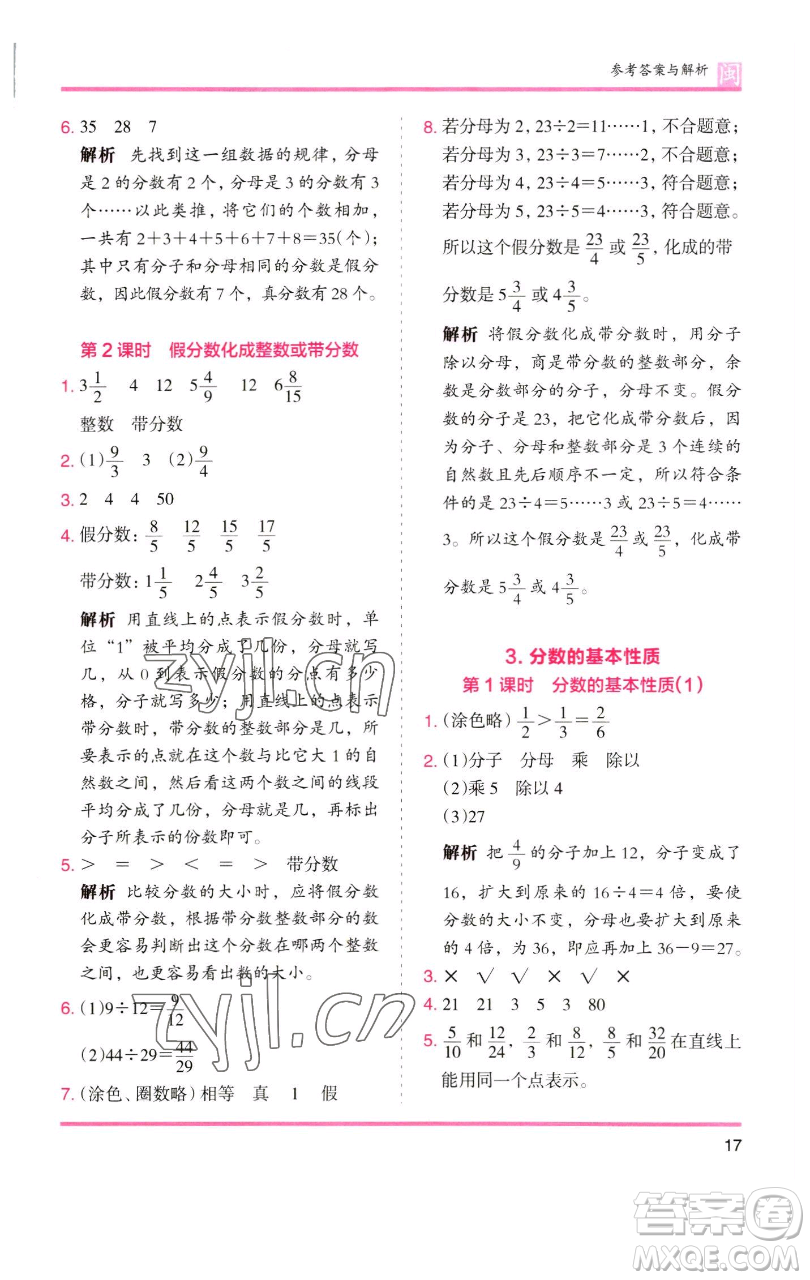 参考答案与解析 闽
6. 35 28 7
解析 先找到这一组数据的规律，分母
是 2 的分数有 2 个，分母是 3 的分数有 3
个……以此类推，将它们的个数相加，
一共有 2+3+4+5+6+7+8=35(个)；
其中只有分子和分母相同的分数是假分
数，因此假分数有 7 个，真分数有 28 个。
第 2 课时 假分数化成整数或带分数
1. 3 1/2 4 12 5 4/9 12 6 8/15
整数 带分数
2. (1) 9/3 3 (2) 9/4
3. 2 4 4 50
4. 假分数：8/5 12/5 15/5 17/5
带分数：1 1/5 2 4/5 3 2/5
解析 用直线上的点表示假分数时，单
位“1”被平均分成了几份，分母就写
几，从 0 到表示假分数的分点有多少
格，分子就写多少；用直线上的点表示
带分数时，带分数的整数部分是几，所
要表示的点就在这个数与比它大 1 的自
然数之间，然后看这两个数之间的线段
平均分成了几份，分母就是几，再标出
分子所表示的份数即可。
5. > = > < = > 带分数
解析 比较分数的大小时，应将假分数
化成带分数，根据带分数整数部分的数
会更容易判断出这个分数在哪两个整数
之间，也更容易看出数的大小。
6. (1)9÷12=9/12
(2)44÷29=44/29
7. (涂色、圈数略) 相等 真 1 假
8. 若分母为 2，23÷2=11……1，不合题意；
若分母为 3，23÷3=7……2，不合题意；
若分母为 4，23÷4=5……3，符合题意；
若分母为 5，23÷5=4……3，符合题意。
所以这个假分数是 23/4 或 23/5，化成的带
分数是 5 3/4 或 4 3/5。
解析 将假分数化成带分数时，用分子
除以分母，商是带分数的整数部分，余
数是分数部分的分子，分母不变。假分
数的分子是 23，把它化成带分数后，因
为分子、分母和整数部分是 3 个连续的
自然数且先后顺序不一定，所以符合条
件的是 23÷4=5……3 或 23÷5=4……
3。所以这个假分数是 23/4 或 23/5，化成带
分数是 5 3/4 或 4 3/5。
3. 分数的基本性质
第 1 课时 分数的基本性质(1)
1. (涂色略) 1/2>1/3=2/6
2. (1)分子 分母 乘 除以
(2)乘 5 除以 4
(3)27
解析 把 4/9 的分子加上 12，分子变成了
16，扩大到原来的 16÷4=4 倍，要使
分数的大小不变，分母也要扩大到原来
的 4 倍，为 36，即应再加上 36－9=27。
3. × √ √ × √
4. 21 21 3 5 3 80
5. 5/10 和 12/24，2/3 和 8/12，8/5 和 32/20 在直线上
能用同一个点表示。
17
zyjl.cn
zyjl.cn
答案圈
MXQE.COM